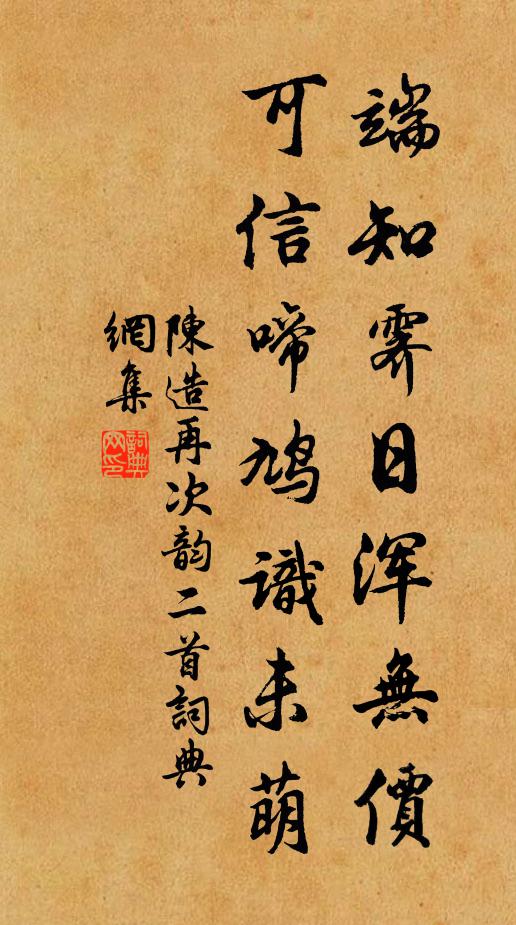 端知霽日浑無價
可信啼鸠識未萌
陳造再次韵二首詞典
網集
詞典网印